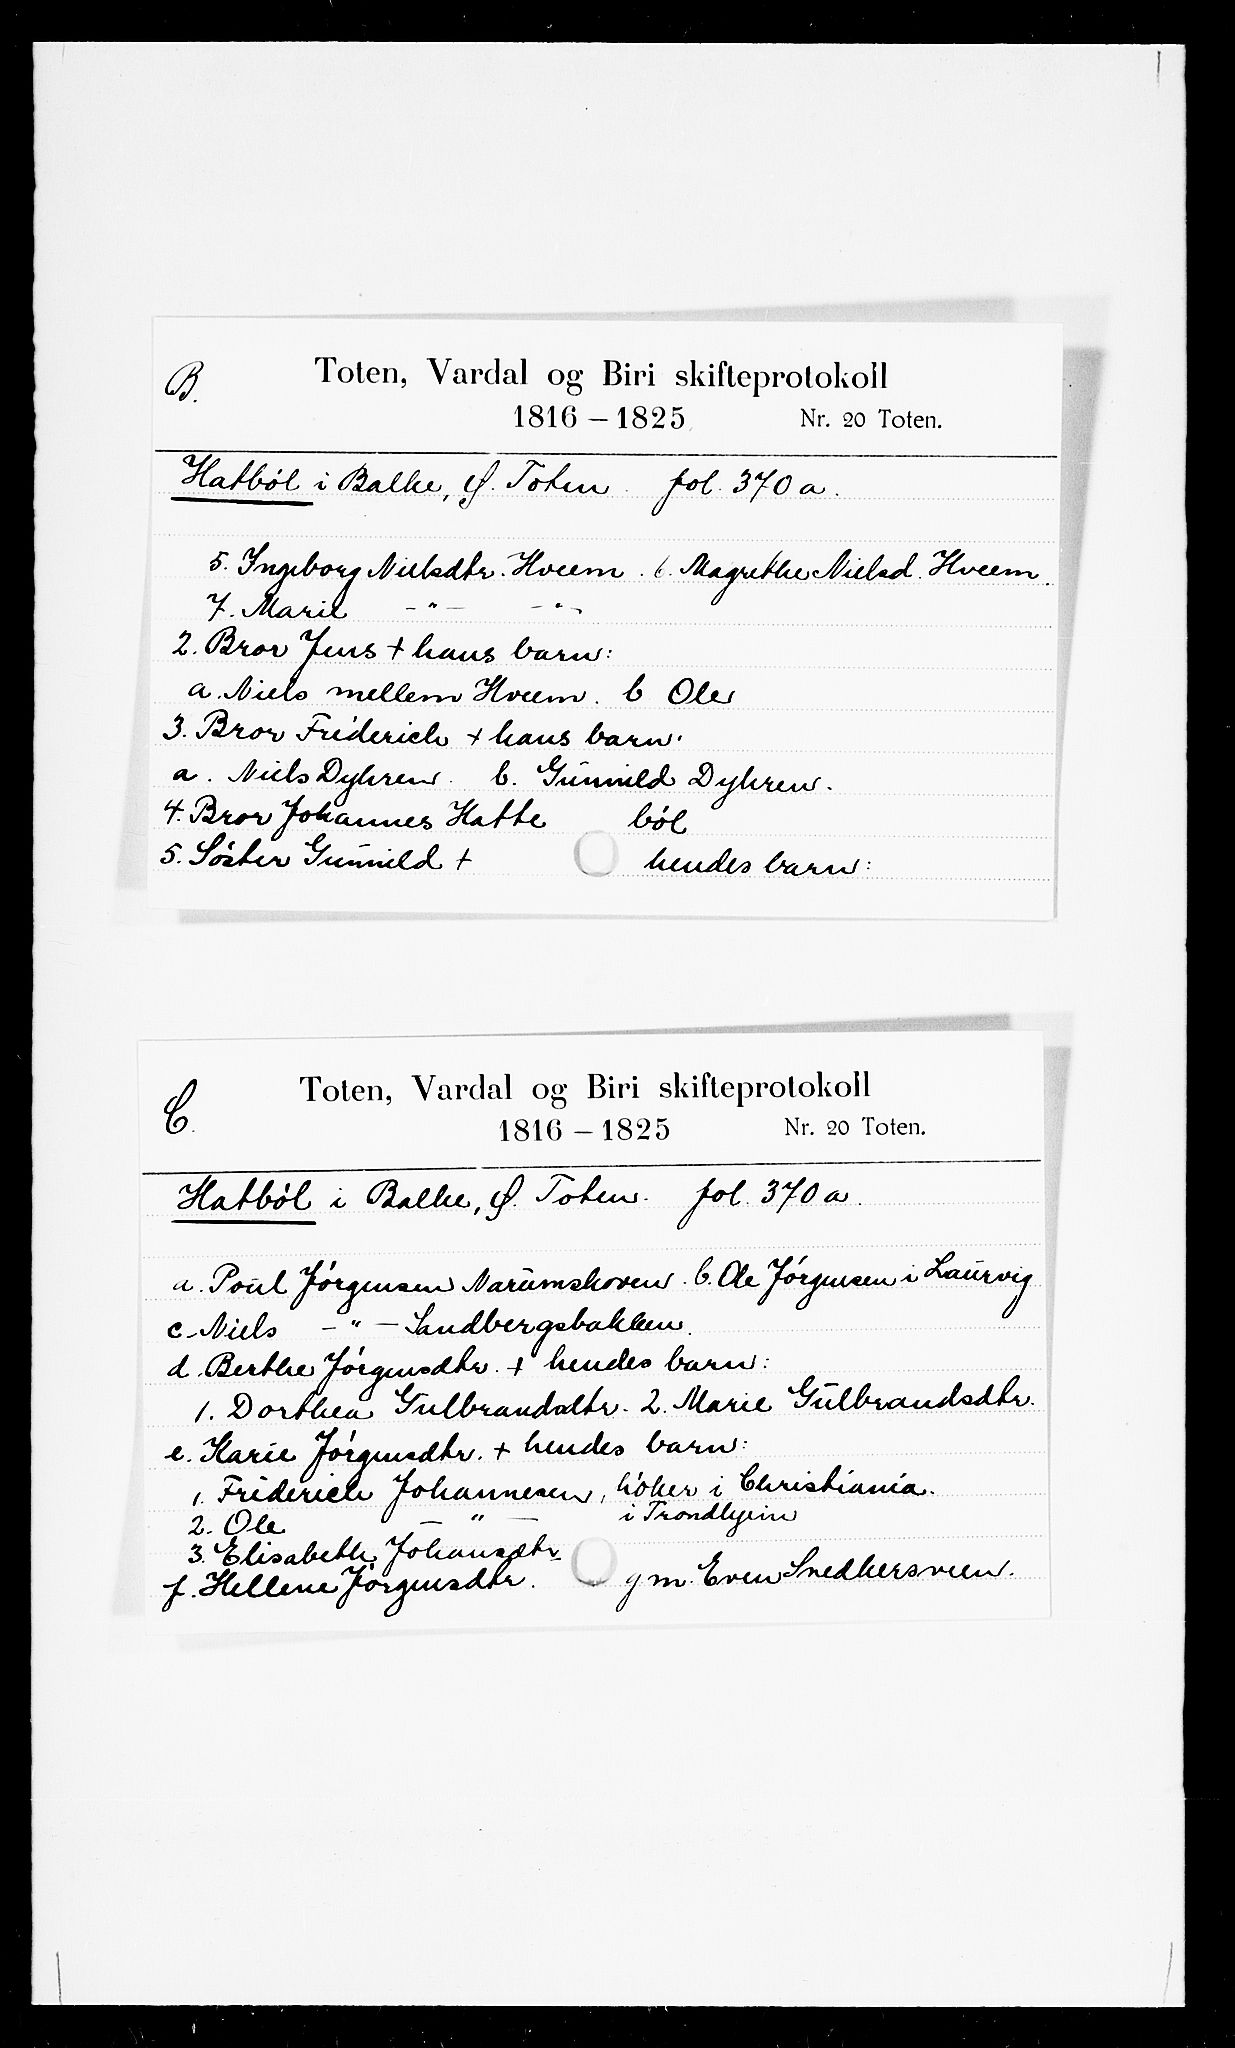 B. Toten, Vardal og Biri skifteprotokoll
1816 – 1825 Nr. 20 Toten.
Hatböl i Balke, Ø. Toten. fol. 370 a.
5. Ingeborg Nielsdtr. Hveem. 6. Magrethe Nielsd. Hveem.
7. Marie – " – – " –
2. Bror Jens + hans barn:
a. Niels mellem Hveem. b Ole
3. Bror Friderich + hans barn:
a. Niels Dyhren. b. Gunnild Dyhren.
4. Bror Johannes Hatte böl
5. Söster Gunnild + hendes barn:
C. Toten, Vardal og Biri skifteprotokoll
1816 – 1825 Nr. 20 Toten.
Hatböl i Balke, Ø. Toten. fol. 370 a.
a. Poul Jörgensen Narumshoven. b. Ole Jörgensen i Laurvig
c. Niels – " – Sandbergsbakken.
d. Berthe Jörgensdtr. + hendes barn:
1. Dorthea Gulbrandsdtr. 2. Marie Gulbrandsdtr.
e. Karie Jörgensdtr. + hendes barn:
1. Friderich Johannesen, höker i Christiania.
2. Ole – " – i Trondhjem
3. Elisabeth Johansdtr.
f. Hellene Jörgensdtr. g m. Even Snedkersveen.